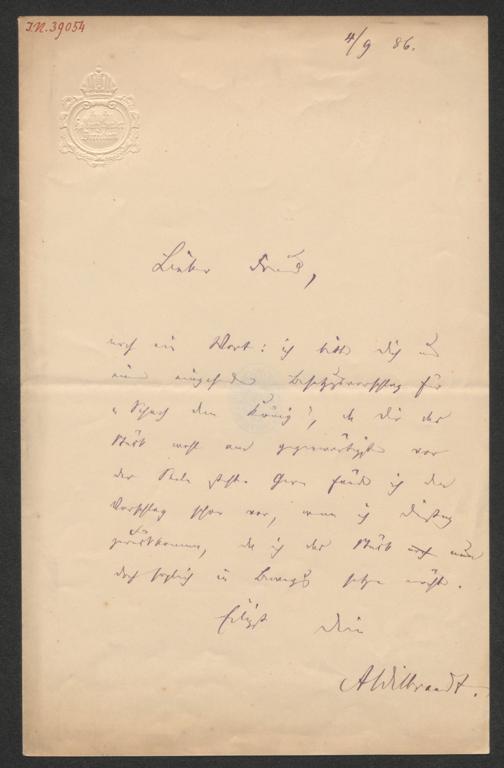 I.N. 39054
4/9 86.
Lieber Freund,
noch ein Wort: ich bitte dich um
einen eingehenden Besetzungsvorschlag für
„Schach dem König", da dir das
Stück wohl am gegenwärtigsten vor
der Seele steht. Gern fände ich den
Vorschlag schon vor, wenn ich Dienstag
zurückkomme, da ich das Stück noch nun
doch sogleich in Bewegung setzen möchte.
Eiligst Dein
AWilbrandt.